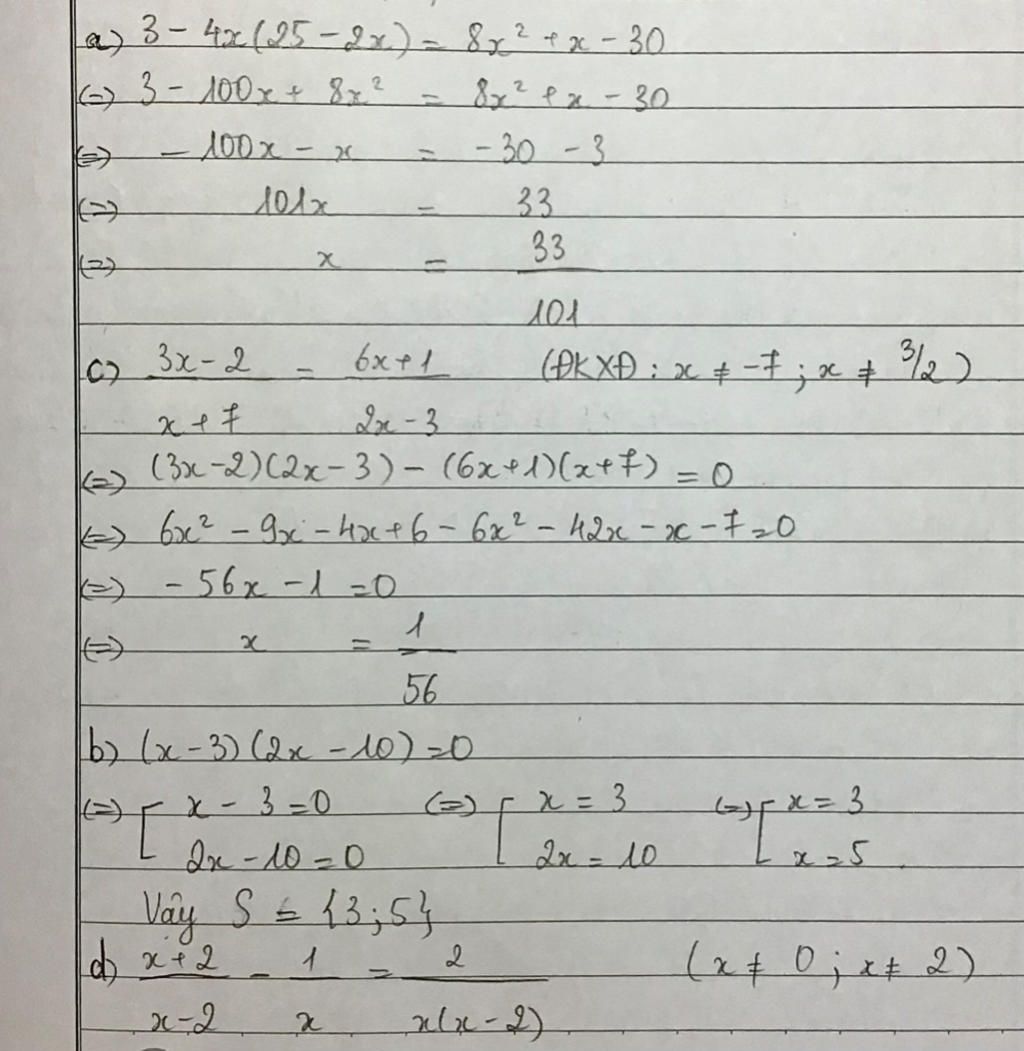 a) 3 - 4x(25 - 2x) = 8x² + x - 30
(=) 3 - 100x + 8x² = 8x² + x - 30
(=) - 100x - x = -30 - 3
(=) 101x = 33
(=) x = 33/101
c) (3x - 2)/(x + 7) = (6x + 1)/(2x - 3) (ĐKXĐ : x ≠ -7 ; x ≠ 3/2)
(=) (3x - 2)(2x - 3) - (6x + 1)(x + 7) = 0
(=) 6x² - 9x - 4x + 6 - 6x² - 42x - x - 7 = 0
(=) - 56x - 1 = 0
(=) x = 1/56
b) (x - 3)(2x - 10) = 0
(=) [ x - 3 = 0 (=) [ x = 3 (=) [ x = 3
2x - 10 = 0 2x = 10 x = 5
Vậy S = {3 ; 5}
d) (x + 2)/(x - 2) - 1/x = 2/(x(x - 2)) (x ≠ 0 ; x ≠ 2)